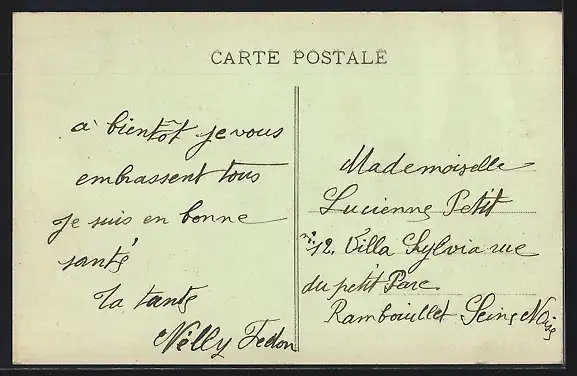 CARTE POSTALE
à bientôt je vous
embrassent tous
je suis en bonne
santé
ta tante
Nelly Fedon
Mademoiselle
Lucienne Petit
n° 12. Villa Sylvia rue
du petit Parc
Rambouillet Seine Oise